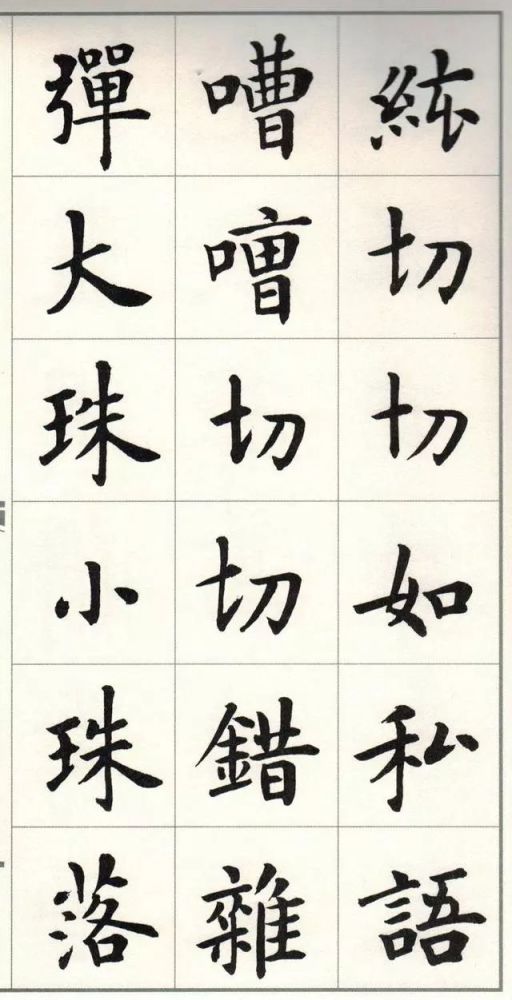 絃切切如私語
嘈嘈切切錯雜
彈大珠小珠落